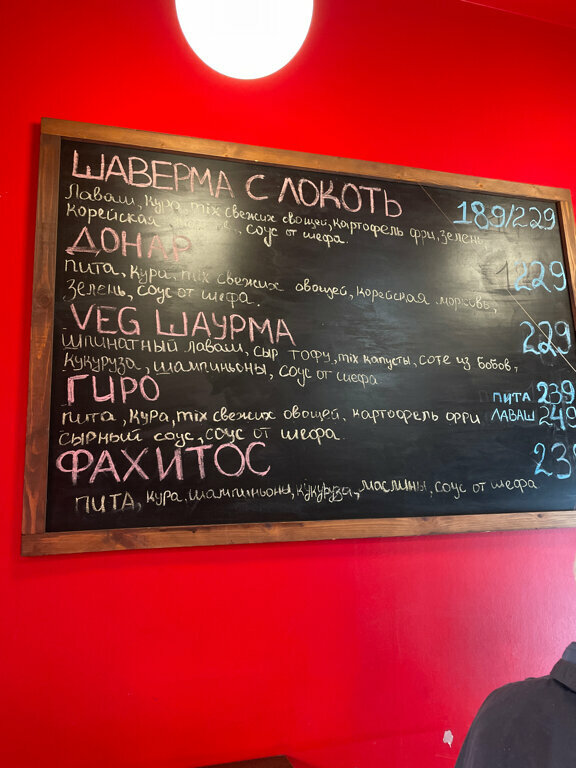 ШАВЕРМА С ЛОКОТЬ 189/229
Лаваш, Кура, mix свежих овощей, картофель фри, зелень,
Корейская соус от шефа.
ДОНАР 229
пита, Кура, mix свежих овощей, корейская морковь,
зелень, соус от шефа.
VEG ШАУРМА 229
шпинатный лаваш, сыр тофу, mix капусты, соте из бобов,
кукуруза, шампиньоны, соус от шефа
ГИРО ПИТА 239
пита, кура, mix свежих овощей, картофель фри ЛАВАШ 249
сырный соус, соус от шефа.
ФАХИТОС 23
ПИТА, кура, шампиньоны, кукуруза, маслины, соус от шефа